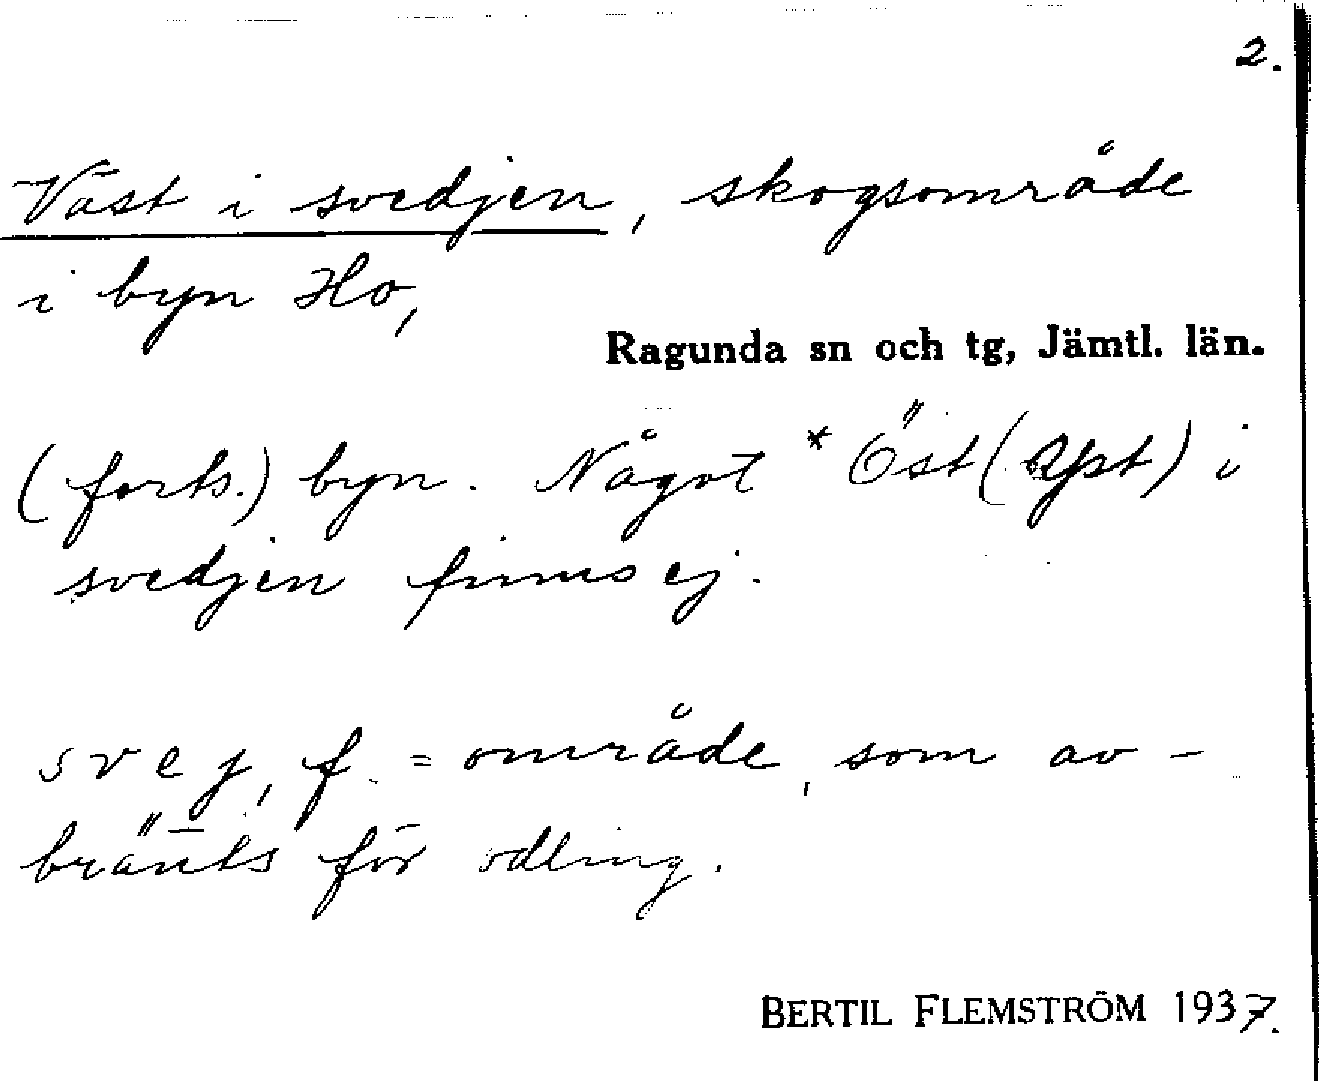 2.
Väst i svedjen, skogsområde
i byn Ho,
Ragunda sn och tg, Jämtl. län.
(forts.) byn. Något * Öst( ) i
svedjen finns ej.
svej, f. = område, som av-
bränts för odling.
BERTIL FLEMSTRÖM 1937.